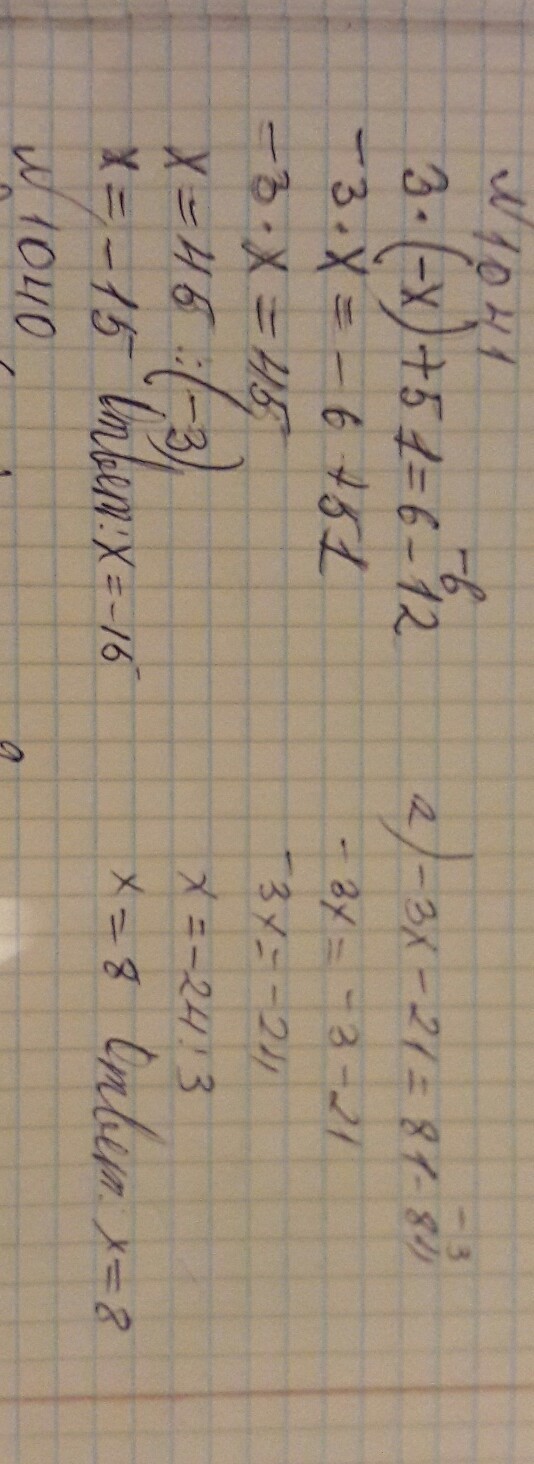 № 1041
3·(-x)+51=6-12 -6
-3·x=-6+51
-3·x=45
x=45:(-3)
x=-15 Ответ: x=-15
г) -3x-21=81-84 -3
-3x=-3-21
-3x=-24
x=-24:3
x=8 Ответ: x=8
№ 1040